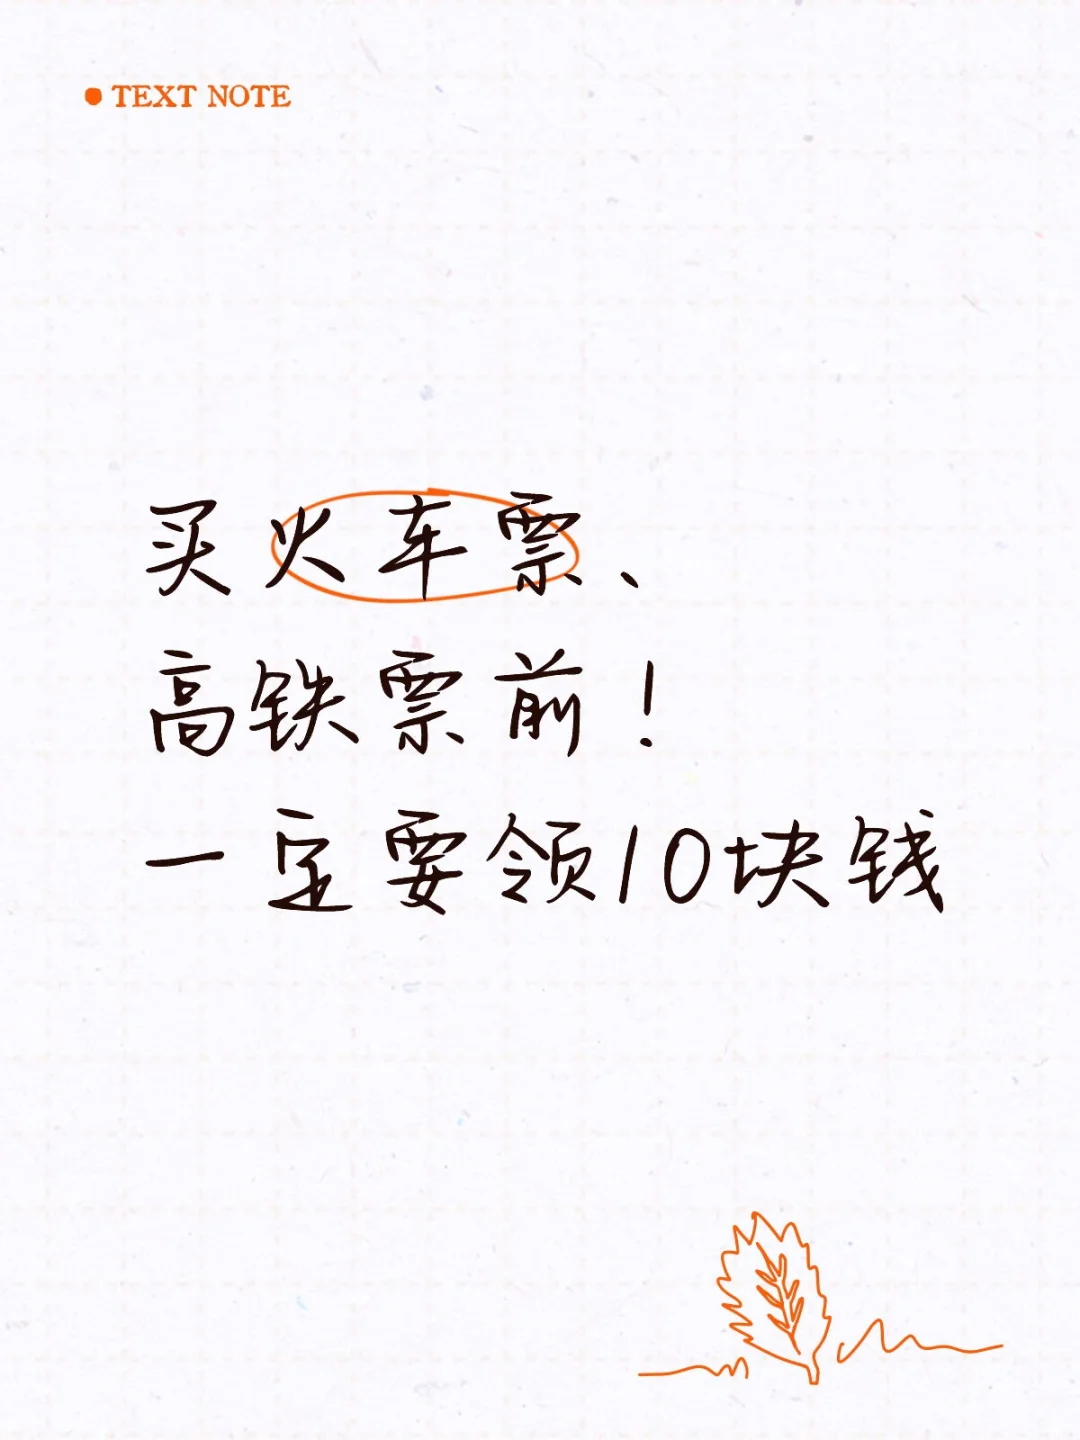 TEXT NOTE
买火车票、
高铁票前！
一定要领10块钱